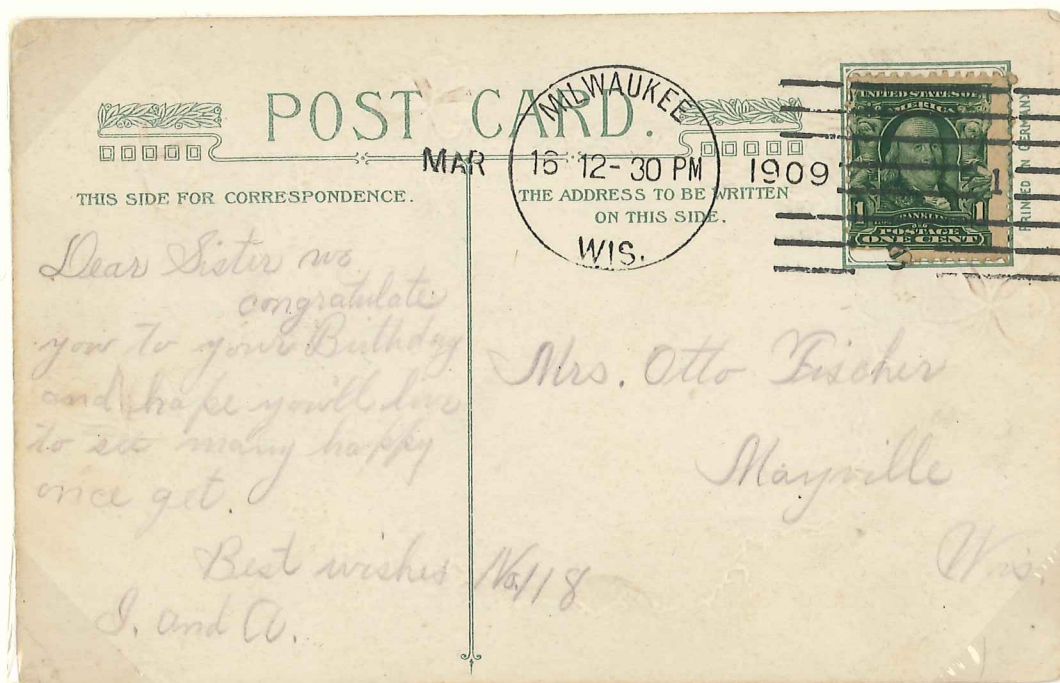 POST CARD.
MILWAUKEE
MAR 16 12-30 PM 1909
WIS.
THIS SIDE FOR CORRESPONDENCE.
THE ADDRESS TO BE WRITTEN
ON THIS SIDE.
UNITED STATES OF
AMERICA
1 FRANKLIN 1
POSTAGE
ONE CENT
1
S
PRINTED IN GERMANY
Dear Sister we
congratulate
you to your Birthday
and hope you'll live
to see many happy
once get.
Best wishes
I. and A.
No. 118
Mrs. Otto Fischer
Mayville
Wis